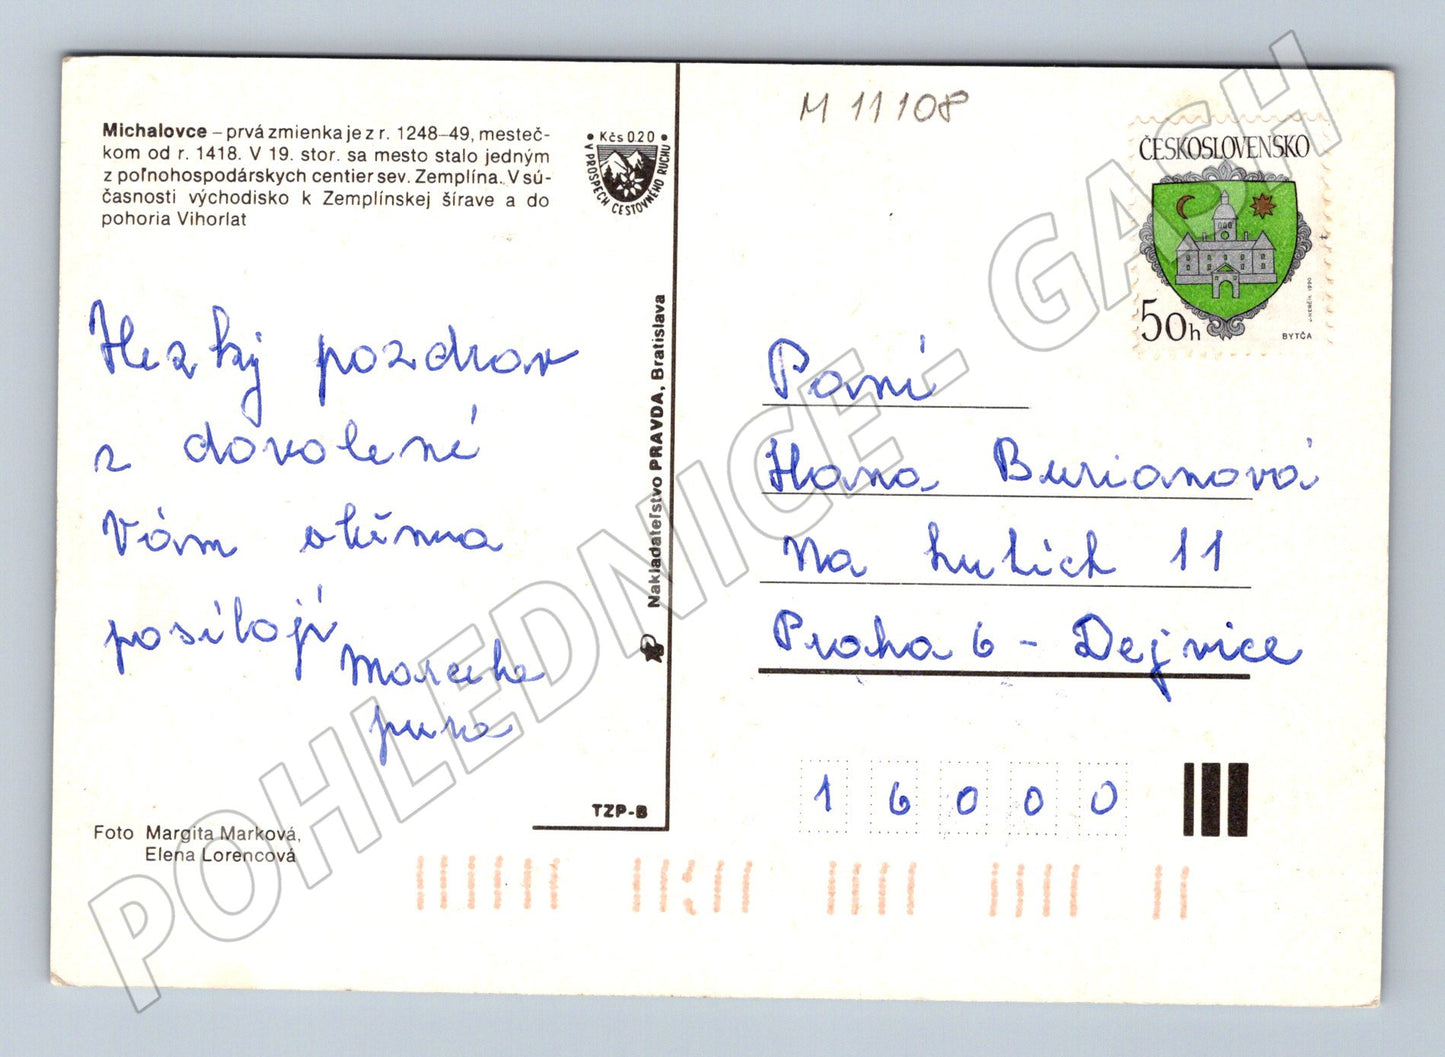 Michalovce – prvá zmienka je z r. 1248–49, mesteč-
kom od r. 1418. V 19. stor. sa mesto stalo jedným
z poľnohospodárskych centier sev. Zemplína. V sú-
časnosti východisko k Zemplínskej šírave a do
pohoria Vihorlat
• Kčs 0.20 •
V PROSPECH CESTOVNÉHO RUCHU
Hezký pozdrav
z dovolené
Vám všema
posílají
Marcelka
Foto Margita Marková,
Elena Lorencová
Nakladateľstvo PRAVDA, Bratislava
TZP-B
M 11108
ČESKOSLOVENSKO
50h
BYTČA
Paní
Hana Burianová
Na hutích 11
Praha 6 - Dejvice
16000
POHLEDNICE - GASH